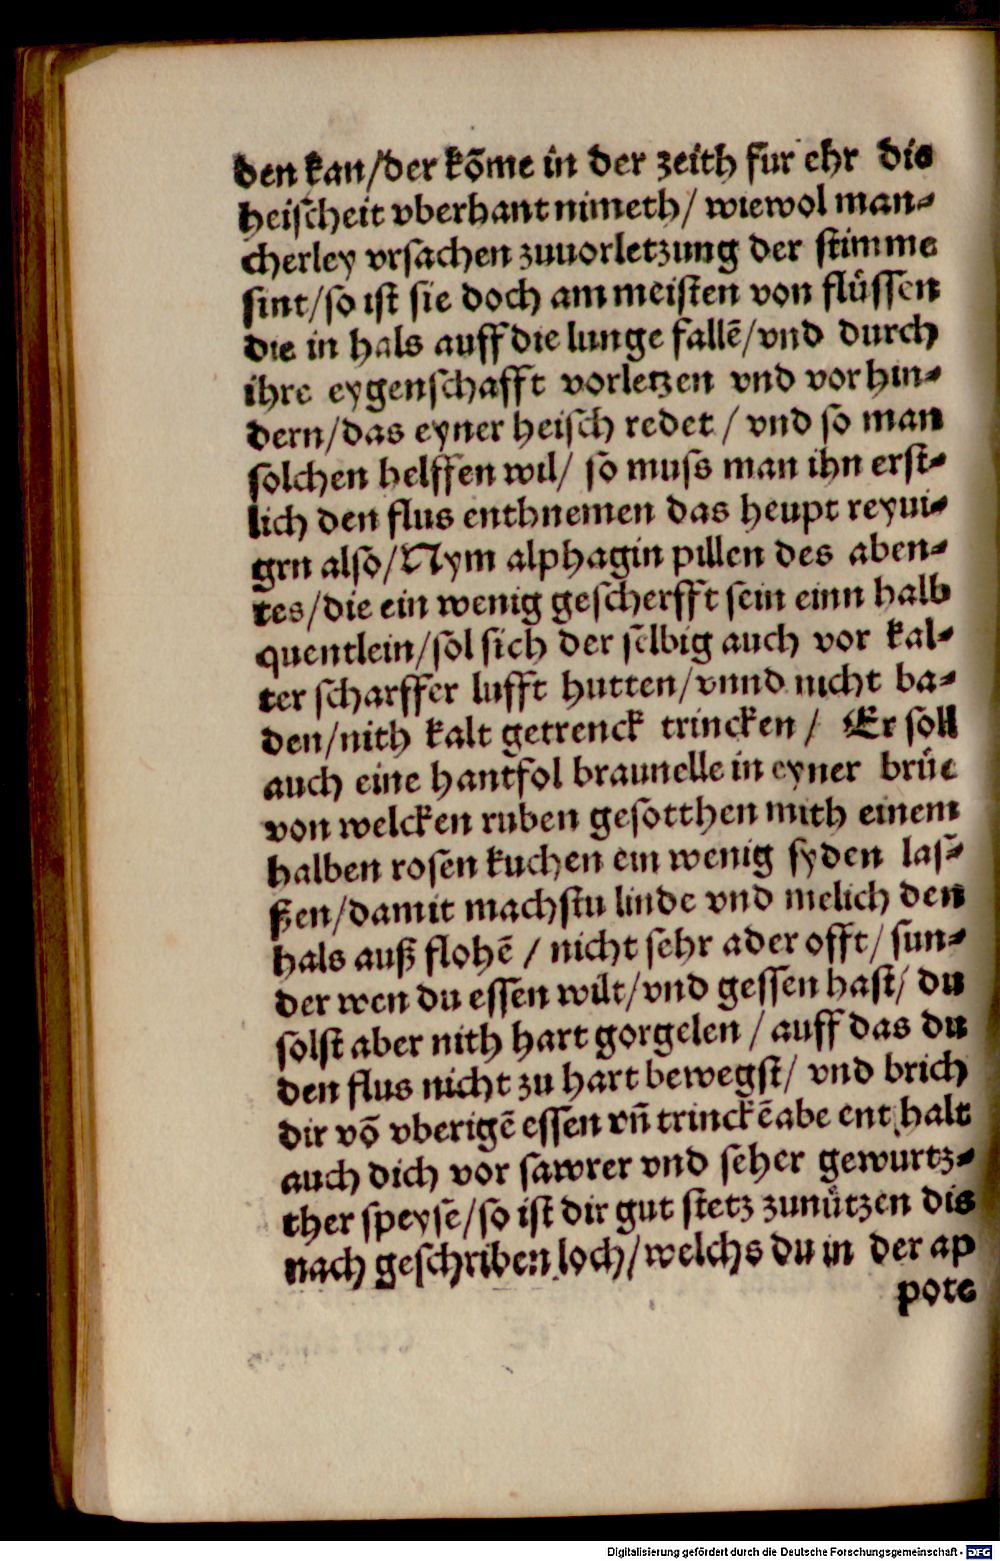 den kan/der kõme in der zeith fur ehr die
heiſcheit vberhant nimeth/ wiewol man⸗
cherley vrſachen zuuorletzung der ſtimme
ſint/ſo iſt ſie doch am meiſten von flüſſen
die in hals auff die lunge fallẽ/vnd durch
ihre eygenſchafft vorletzen vnd vorhin⸗
dern/das eyner heiſch redet / vnd ſo man
ſolchen helffen wil/ ſo muſs man ihn erſt⸗
lich den flus enthnemen das heupt reyni⸗
grn alſo/Nym alphagin pillen des aben⸗
tes/die ein wenig geſcherfft ſein einn halb
quentlein/ſol ſich der ſelbig auch vor kal⸗
ter ſcharffer lufft hutten/vnnd nicht ba⸗
den/nith kalt getrenck trincken / Er ſoll
auch eine hantfol braunelle in eyner brüe
von welcken ruben geſotthen mith einem
halben roſen kuchen ein wenig ſyden laſ⸗
ßen/damit machſtu linde vnd melich den
hals auß flohẽ / nicht ſehr ader offt/ ſun⸗
der wen du eſſen wilt/vnd geſſen haſt/ du
ſolſt aber nith hart gorgelen / auff das du
den flus nicht zu hart bewegſt/ vnd brich
dir võ vberigẽ eſſen vñ trinckẽ abe ent halt
auch dich vor ſawrer vnd ſeher gewurtz⸗
ther ſpeyſe/ſo iſt dir gut ſtetz zunützen dis
nach geſchriben loch/welchs du in der ap
pote
Digitalisierung gefördert durch die Deutsche Forschungsgemeinschaft - DFG